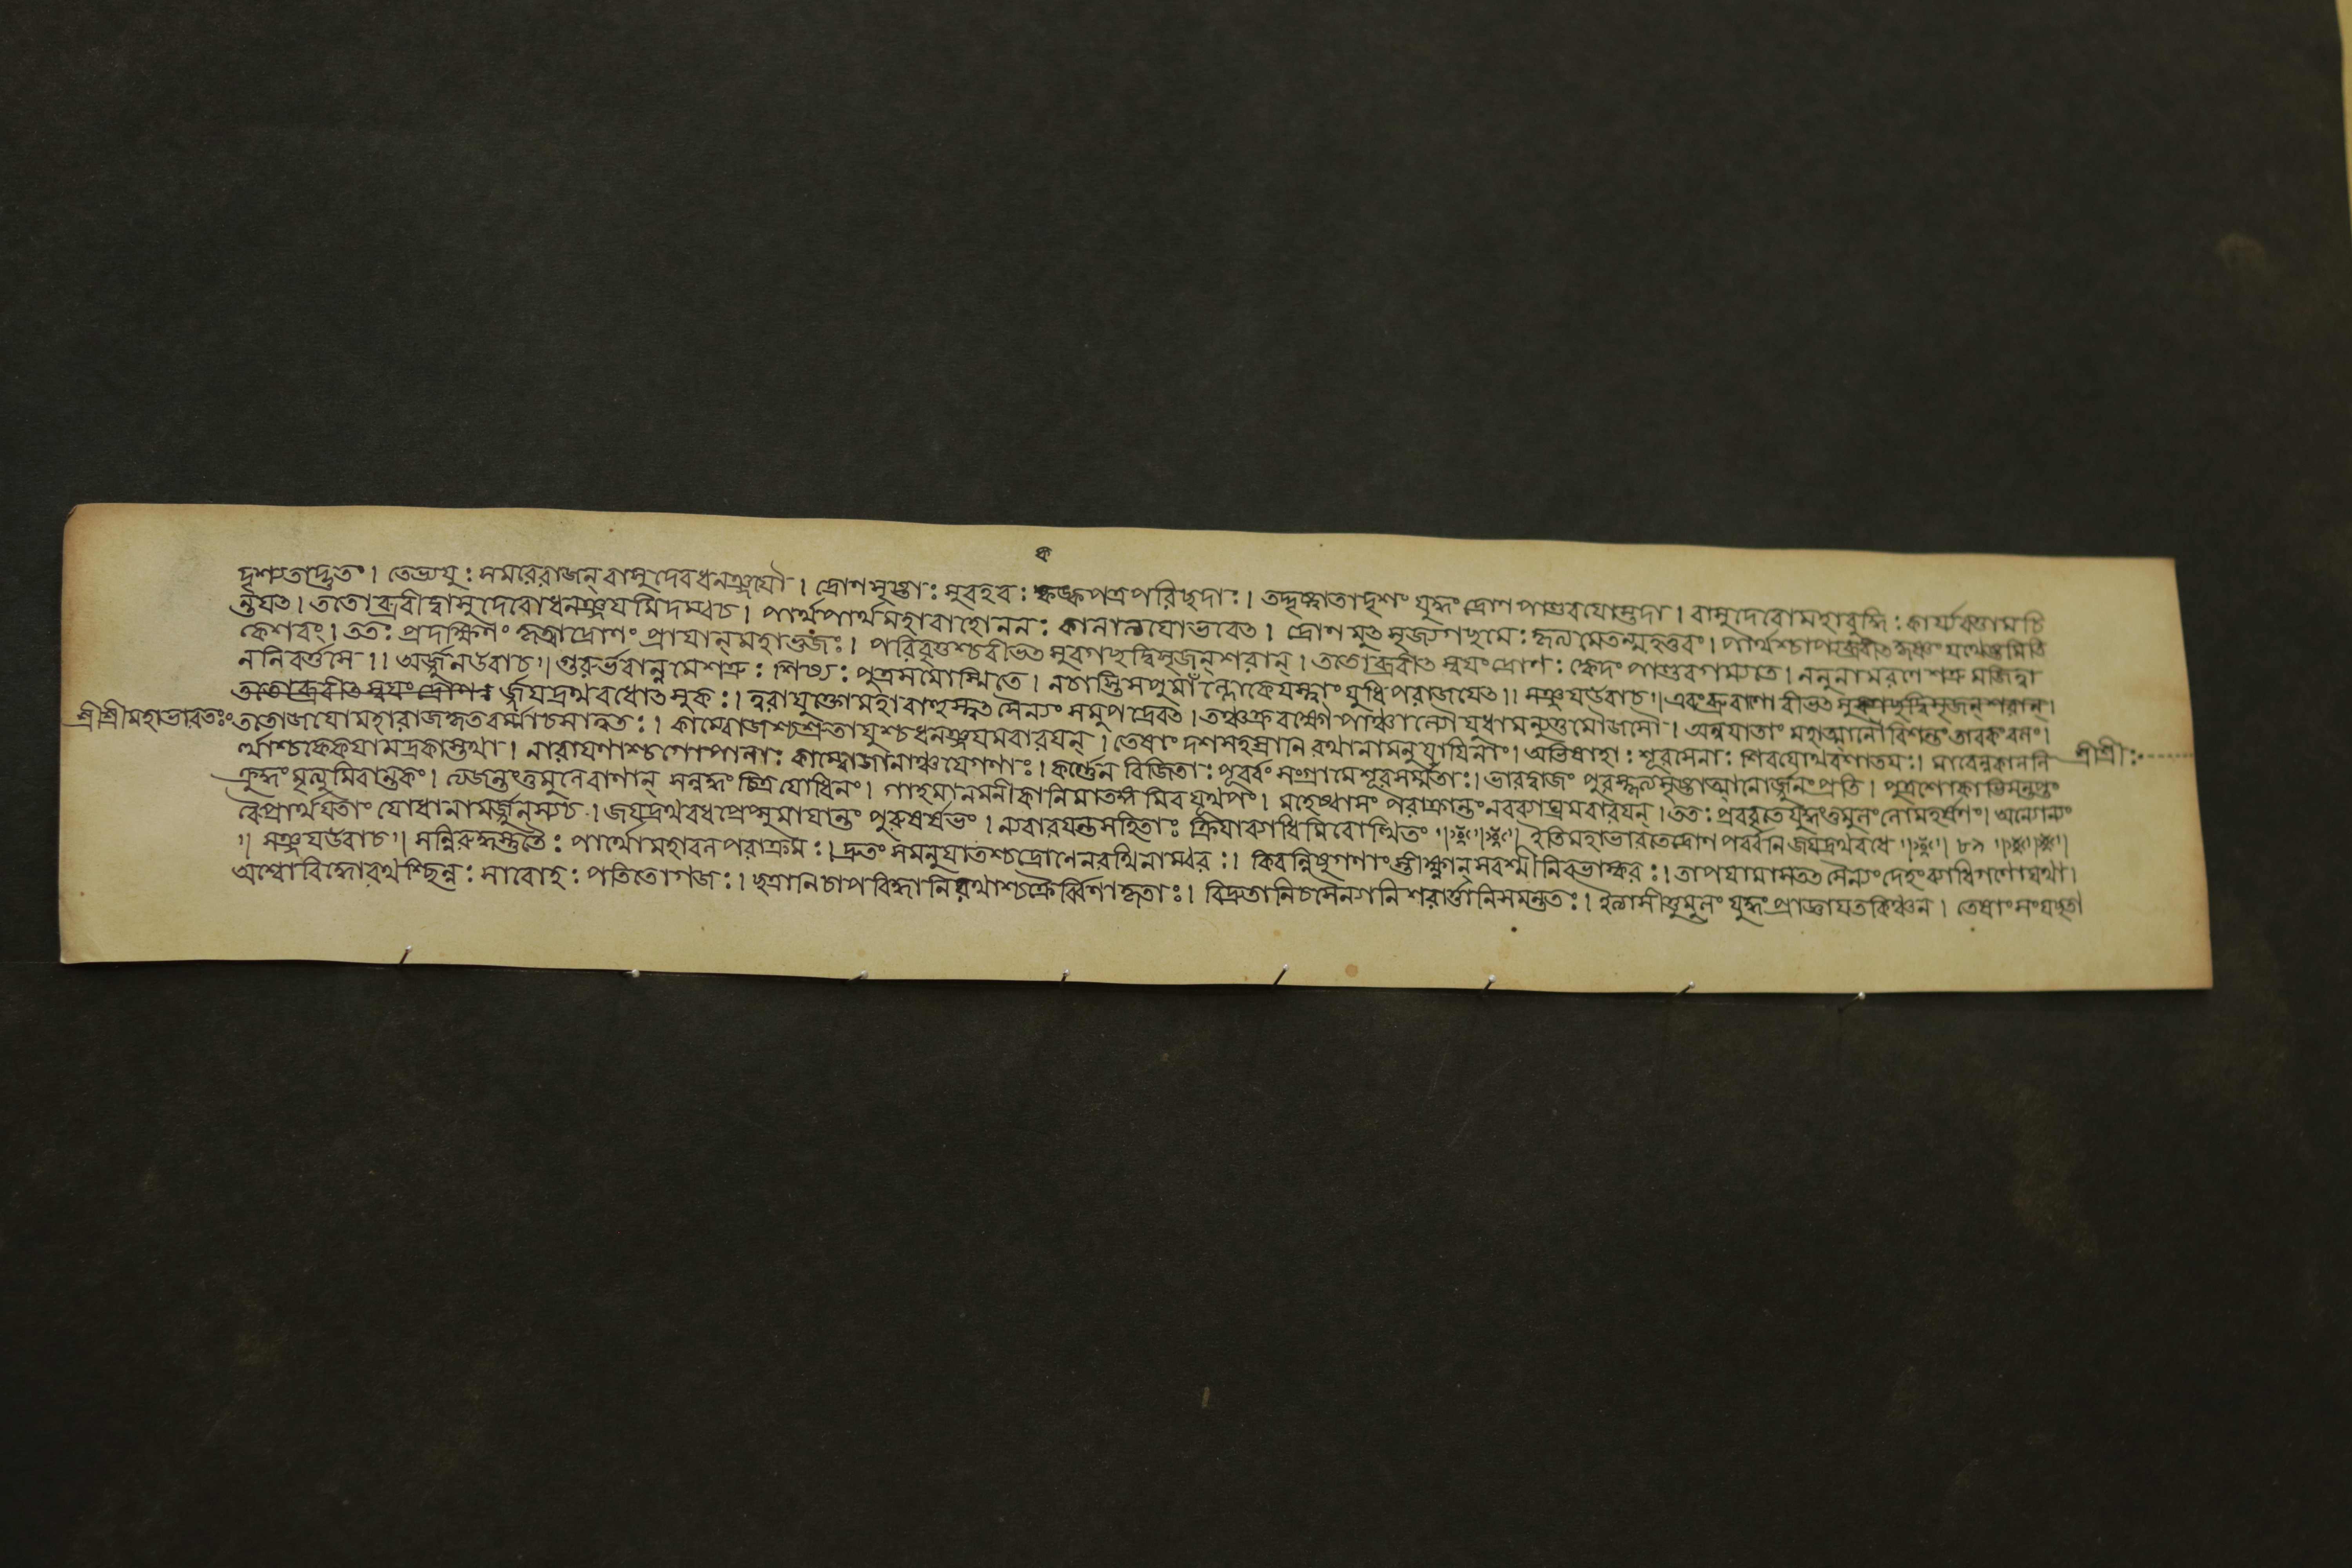 ক
দৃশ্যতাদ্ভুতং। তেভ্যযুঃ সমরেরাজন্ বাসুদেবধনঞ্জয়ৌ। দ্রোণসৃষ্টাঃ সুবহবঃ কঙ্কপত্রপরিছদাঃ। তদ্দৃষ্ট্বাতাদৃশং যুদ্ধং দ্রোণপাণ্ডবযোস্তদা। বাসুদেবোমহাবুদ্ধিঃ কার্য্যবত্তামচি
ন্তযৎ। ততোব্রবীদ্বাসুদেবোধনঞ্জযমিদম্বচ। পার্থপার্থমহাবাহোননঃ কালাত্যযোভবেৎ। দ্রোণমুৎসৃজ্যগছামঃ কৃত্যমেতন্মহত্তরং। পার্থশ্চাপ্যব্রবীৎকৃষ্ণং যথেষ্টমিতি
কেশবং। ততঃ প্রদক্ষিণং কৃত্বাদ্রোণং প্রাযান্ মহাভুজঃ। পরিবৃত্তশ্চবীভৎসুরগছদ্বিসৃজন্ শরান্। ততোব্রবীৎ স্বযংদ্রোণঃ ক্বেদং পাণ্ডবগম্যতে। ননুনামরণে শত্রুমজিত্বা
ননিবর্ত্তসে॥ অর্জ্জুনউবাচ॥ গুরুর্ভবান্নমেশত্রুঃ শিষ্যঃ পুত্রসমোস্মিতে। নচাস্তিসপুমাঁল্লোকেযস্ত্বাং যুধিপরাজযেৎ॥ সঞ্জযউবাচ॥ এবংব্রুবাণোবীভৎসু
র্জযদ্রথবধোৎসুকঃ। ত্বরাযুক্তোমহাবাহুস্তৎসৈন্যং সমুপাদ্রবৎ। তঞ্চক্ররক্ষৌপাঞ্চাল্যৌযুধামন্যূত্তমৌজসৌ। অন্বযাতাং মহাত্মানৌবিশন্তং তাবকংবলং।
শ্রীশ্রীমহাভারতঃ ততোজযোমহারাজকৃতবর্ম্মাচসাত্বতঃ। কাম্বোজশ্চশ্রুতাযুশ্চধনঞ্জযমবারযন্। তেষাং দশসহস্রানিরথানামনুযাযিনাং। অভিষাহাঃ শূরসেনাঃ শিবযোথবশাতযঃ। মাবেল্লকাললি
ত্থাশ্চকেকযামদ্রকাস্তথা। নারাযণাশ্চগোপালাঃ কাম্বোজানাঞ্চযেগণাঃ। কর্ণ্ণেনবিজিতাঃ পূর্ব্বং সংগ্রামেশূরসম্মতাঃ। ভারদ্বাজং পুরস্কৃত্যসৃষ্টাত্মানোর্জ্জুনং প্রতি। পুত্রশোকাভিসন্তপ্তং শ্রীশ্রীঃ
ক্রুদ্ধং মৃত্যুমিবান্তকং। ত্যজন্তংতুমুলেবাণান্ সন্নদ্ধং চিত্রযোধিনং। গাহমানমনীকানিমাতঙ্গমিবযূথপং। মহেষ্বাসং পরাক্রান্তংনরব্যাঘ্রমবারযন্। ততঃ প্রববৃতেযুদ্ধংতুমুলংলোমহর্ষণং। অন্যোন্যং
বৈপ্রার্থযতাং যোধানামর্জ্জুনস্যচ। জযদ্রথবধপ্রেপ্সুমাযান্তং পুরুষর্ষভং। ন্যবারযন্তসহিতাঃ ক্রিযাব্যাধিমিবোত্থিতং ॥ ইতিমহাভারতেদ্রোণপর্ব্বনি জযদ্রথবধে ॥ ৮৯ ॥
॥ সঞ্জযউবাচ॥ সন্নিরুদ্ধস্তুতৈঃ পার্থোমহাবলপরাক্রমঃ। দ্রুতং সমনুযাতশ্চদ্রোণেনরথিনাম্বরঃ। কিরন্নিষুগণাংস্তীক্ষ্ণান্ সরশ্মীনিবভাস্করঃ। তাপযামাসতৎসৈন্যংদেহংব্যাধিগণোযথা।
অশ্বোবিদ্ধোরথশ্ছিন্নঃ সারোহঃ পতিতোগজঃ। ছত্রানিচাপবিদ্ধানিরথাশ্চক্রৈর্ব্বিণাকৃতাঃ। বিদ্রুতানিচসৈন্যানিশরার্ত্তানিসমন্ততঃ। ইত্যাসীত্তুমুলং যুদ্ধংপ্রাজ্ঞাযতকিঞ্চন। তেষাংসংযছতা